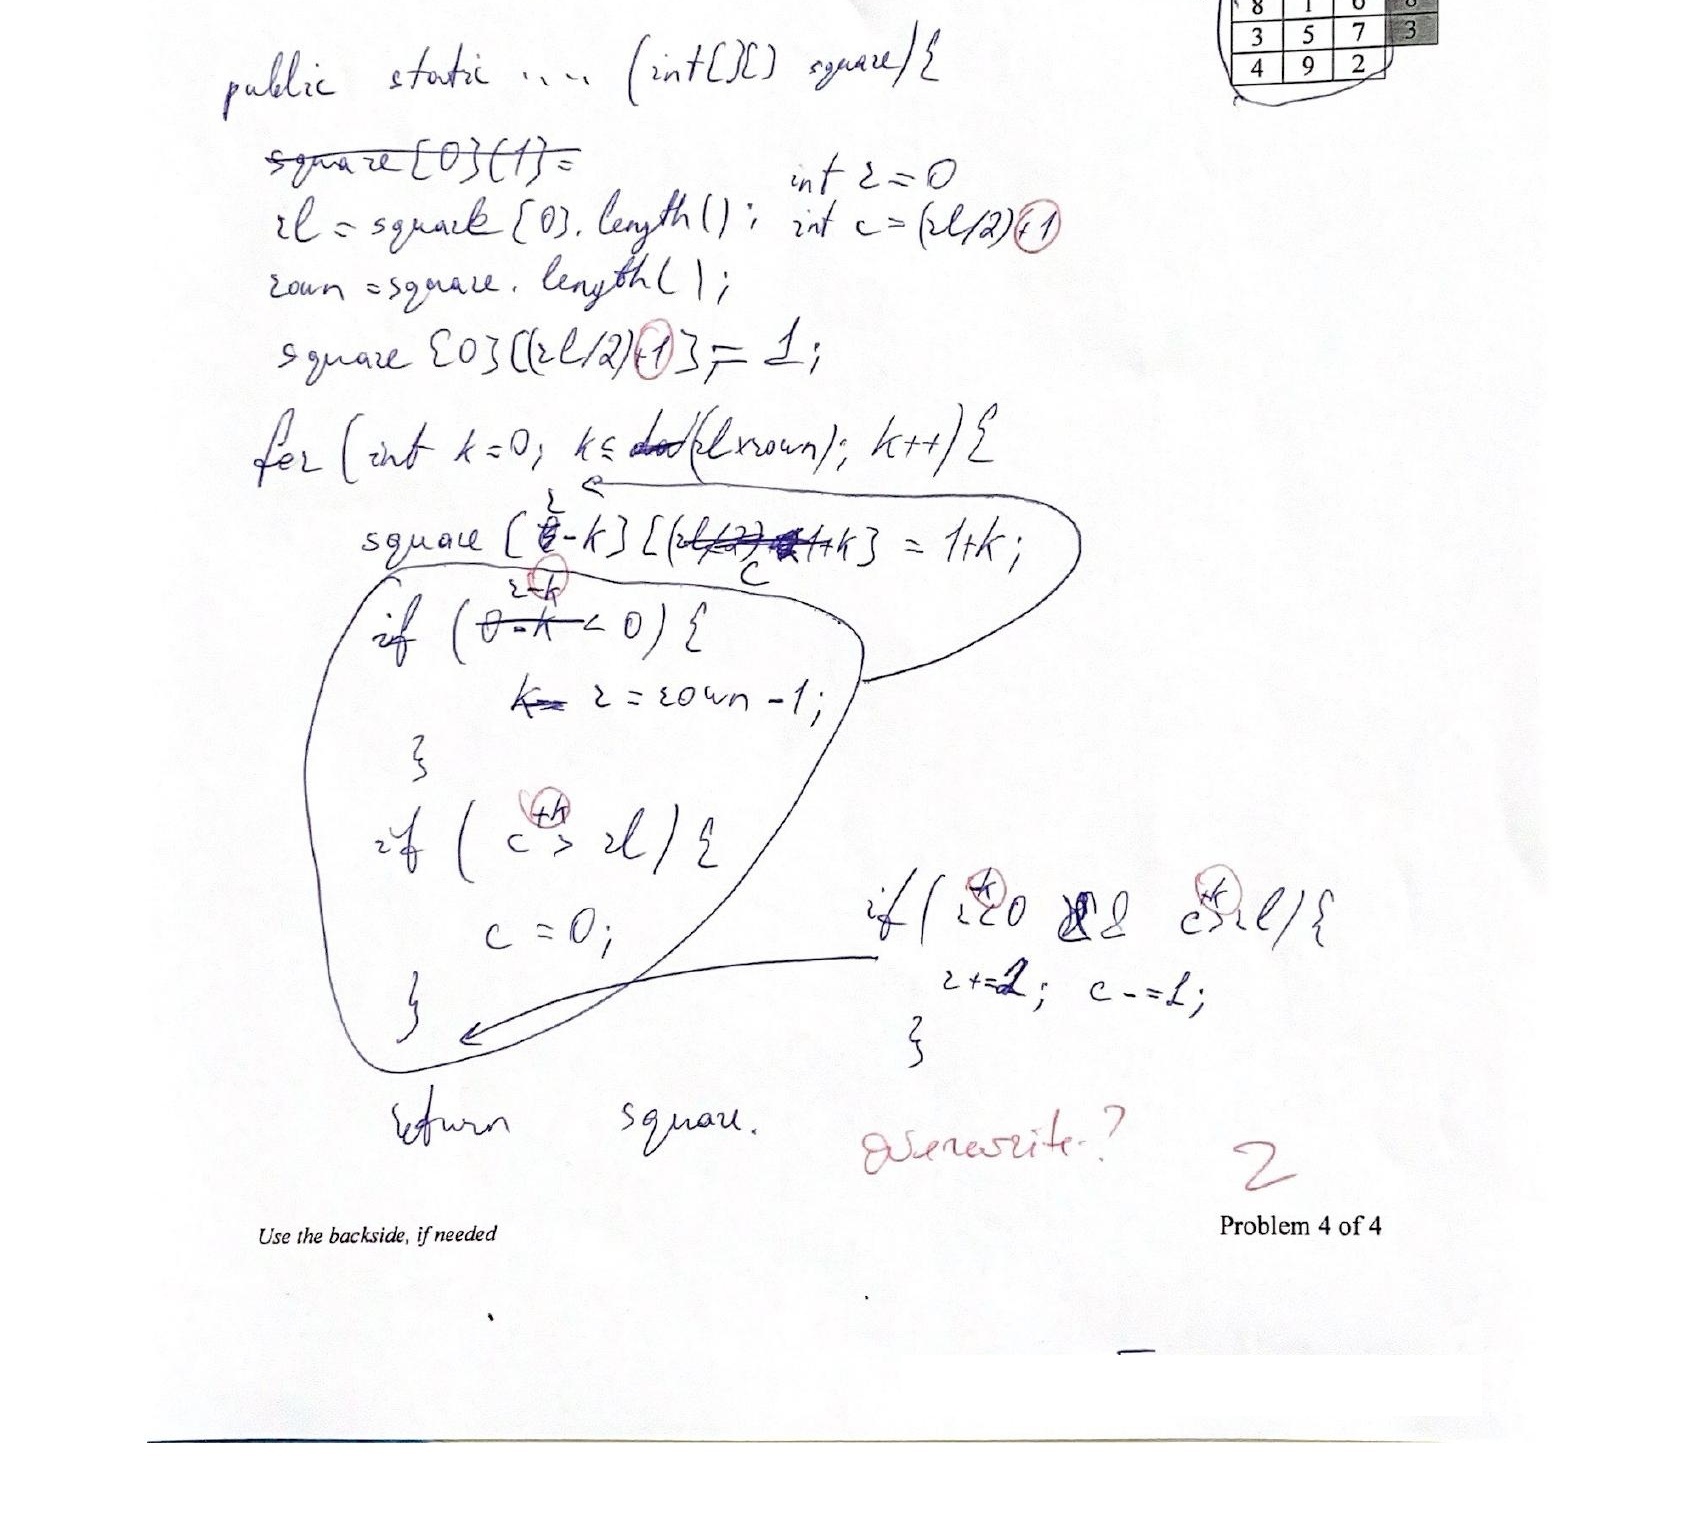 8 1 6 8
3 5 7 3
4 9 2
public static ..... (int[][] square){
square[0][1]=
int r=0
rl = square[0].length(); int c=(rl/2)+1
rown = square.length();
square[0][(rl/2)+1] = 1;
for (int k=0; k≤ (rl×rown); k++){
square [r-k] [c+k] = 1+k;
r-k
if (0-k < 0) {
k= r = rown -1;
}
if ( c+k > rl) {
c = 0;
}
if( r-k<0 && c+k>rl){
r+=2; c-=1;
}
return square.
overwrite?
2
Use the backside, if needed
Problem 4 of 4